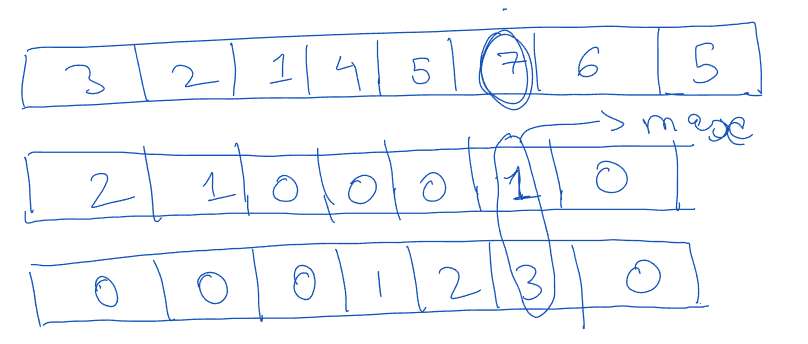 3 2 1 4 5 7 6 5
max
2 1 0 0 0 1 0
0 0 0 1 2 3 0